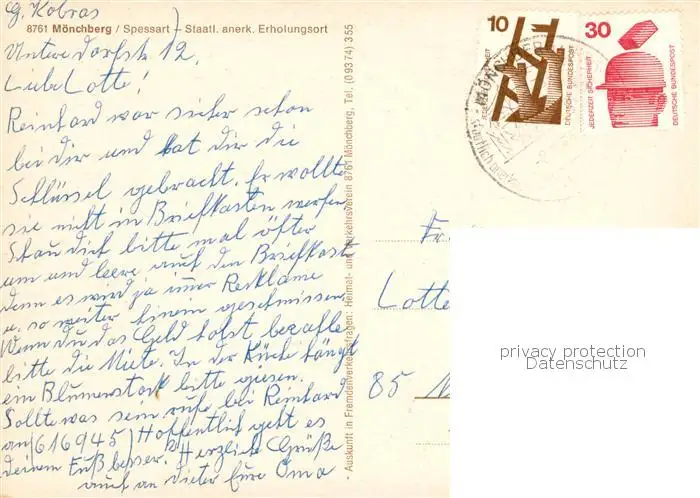 G. Kobras
8761 Mönchberg / Spessart – Staatl. anerk. Erholungsort
Untere Dorfstr. 12.
Liebe Lotte!
Reinhard war sicher schon
bei dir und hat dir die
Schlüssel gebracht. Er wollte
sie nicht in Briefkasten werfen
Schau dich bitte mal öfter
um und leere auch den Briefkast
denn es wird ja imer Recklame
u. so weiter hinein geschmissen
Wenn du das Geld holst bezahle
bitte die Miete. In der Küche hängt
ein Blumenstock bitte giesen.
Sollte was sein rufe bei Reinhard
an (616945) Hoffentlich geht es
deinem Fuß besser? Herzliche Grüße
auch an dieter Eure Oma
Auskunft in Fremdenverkehrsfragen: Heimat- und Verkehrsverein 8761 Mönchberg, Tel. (09374) 355
10
JEDERZEIT SICHERHEIT
DEUTSCHE BUNDESPOST
30
JEDERZEIT SICHERHEIT
DEUTSCHE BUNDESPOST
Lotte
85
privacy protection
Datenschutz